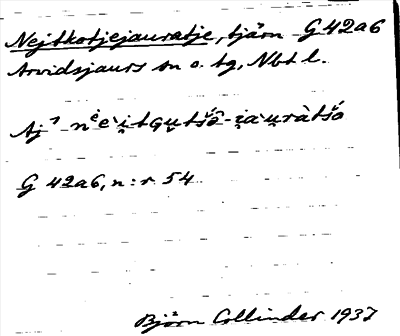 Nejtkotjejauratje, tjärn G 42a6
Arvidsjaurs sn o. tg, Nbt l.
Aj³ nė̀e̯i̯tgu̯tšŏ́-i̯au̯ràtšŏ́
G 42a6, n:r 54
Björn Collinder 1937